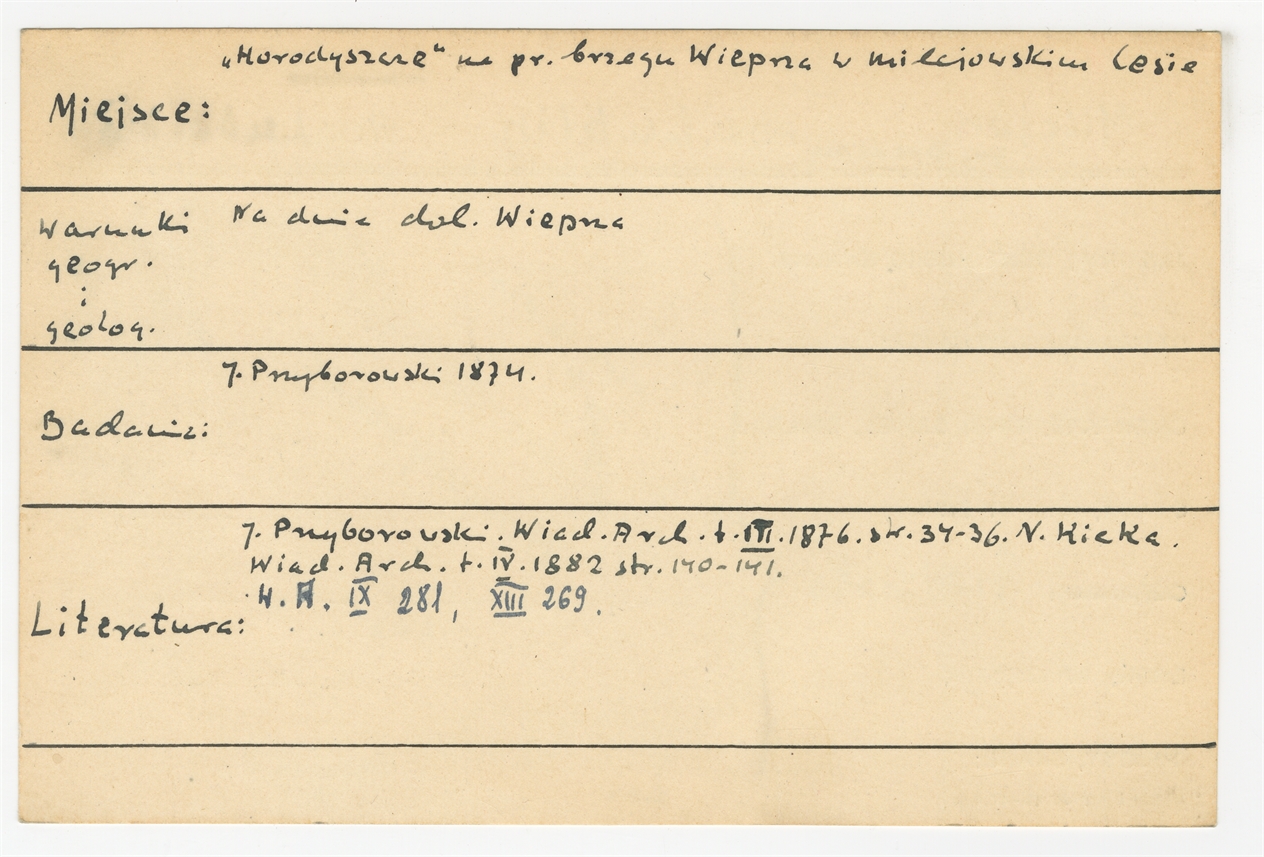 „Horodyszcze“ na pr. brzegu Wieprza w milejowskim lesie
Miejsce:
Warunki Na dnie dol. Wieprza
geogr.
i
geolog.
J. Przyborowski 1874.
Badania:
J. Przyborowski. Wiad. Arch. t. III. 1876. str. 34-36. N. Kicka.
Wiad. Arch. t. IV. 1882 str. 140-141.
W. A. IX 281, XIII 269.
Literatura: